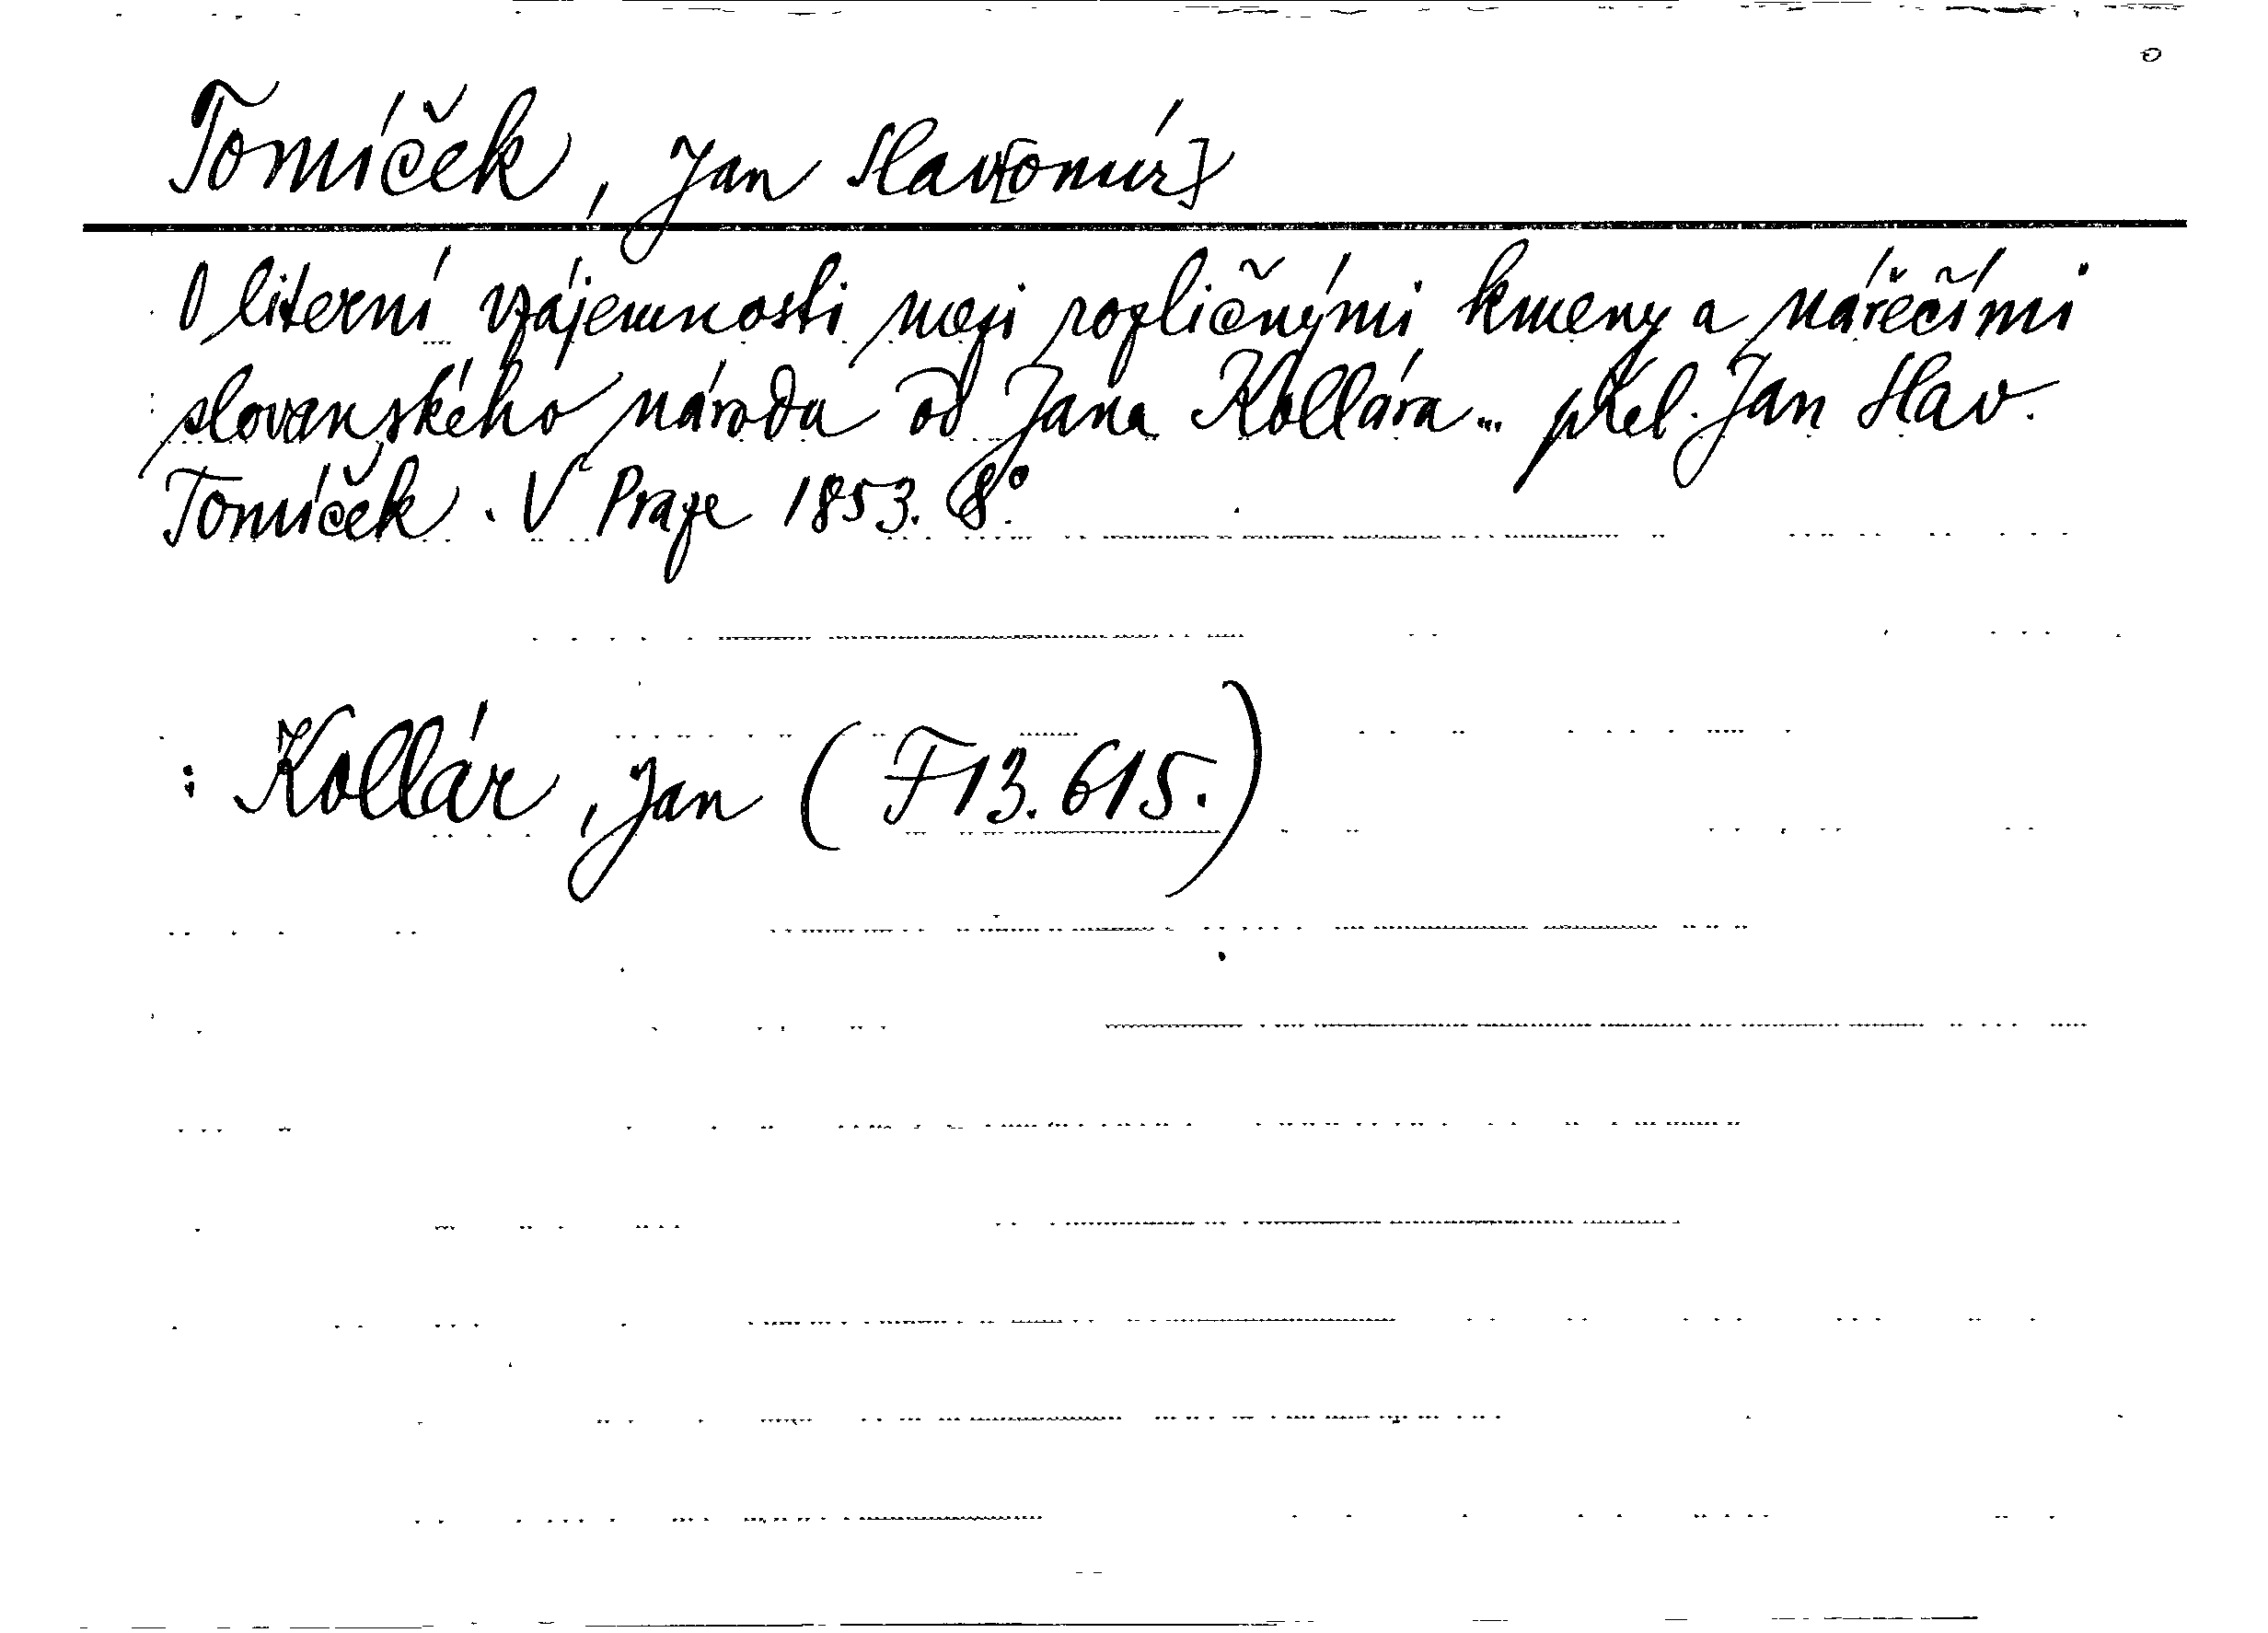 Tomíček, Jan Slav[omír]
O literní vzájemnosti mezi rozličnými kmeny a nářečími
slovanského národu od Jana Kollára... přel. Jan Slav.
Tomíček. V Praze 1853. 8°.
: Kollár, Jan (F 13.615.)